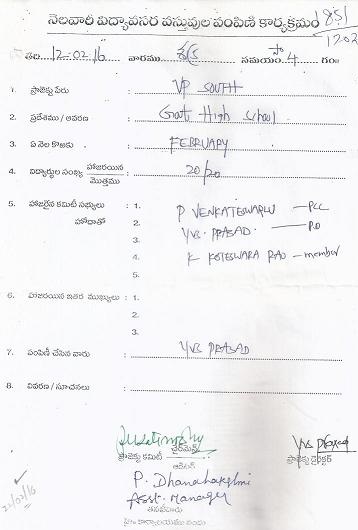 నెలవారీ విద్యావసర వస్తువుల పంపిణీ కార్యక్రమం 1851
1202
తేది. 12-02-16 వారము శుక్ర సమయం సా 4 గం॥
1. ప్రాజెక్టు పేరు : VP SOUTH
2. ప్రదేశము / ఆవరణ : Govt High School
3. ఏ నెల కొఱకు : FEBRUARY
4. విద్యార్థుల సంఖ్య హాజరయిన / మొత్తము : 20/20
5. హాజరైన కమిటీ సభ్యులు : 1. P VENKATESWARLU — PCC
హోదాతో 2.
3. YVB. PRASAD. — PD
4. K KOTESWARA RAO — member
5.
6. హాజరయిన ఇతర ముఖ్యులు : 1.
2.
3.
7. పంపిణీ చేసిన వారు : YVB PRASAD
8. వివరణ / సూచనలు :
ఛైర్మెన్ YVB Prasad
ప్రాజెక్టు కమిటీ ప్రాజెక్టు డైరెక్టర్
ఆడిటర్
P. Dhanalakshmi
Asst. Manager
తనిఖీదారు
22/02/16